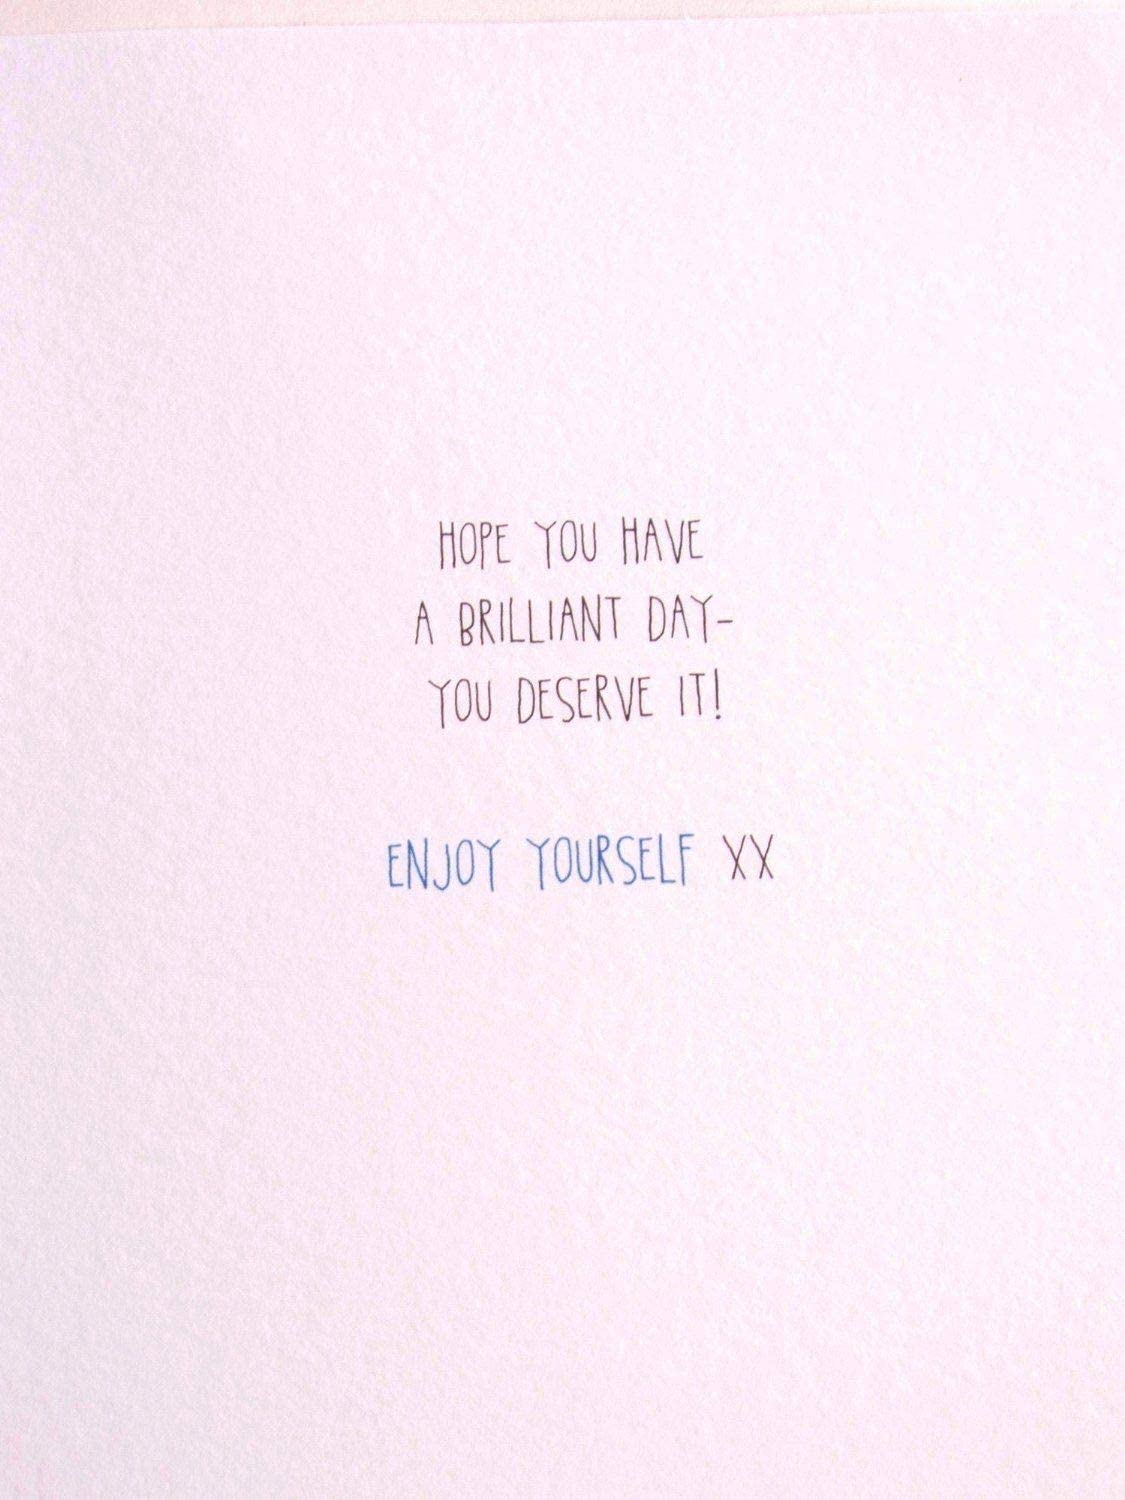 HOPE YOU HAVE
A BRILLIANT DAY-
YOU DESERVE IT!
ENJOY YOURSELF XX